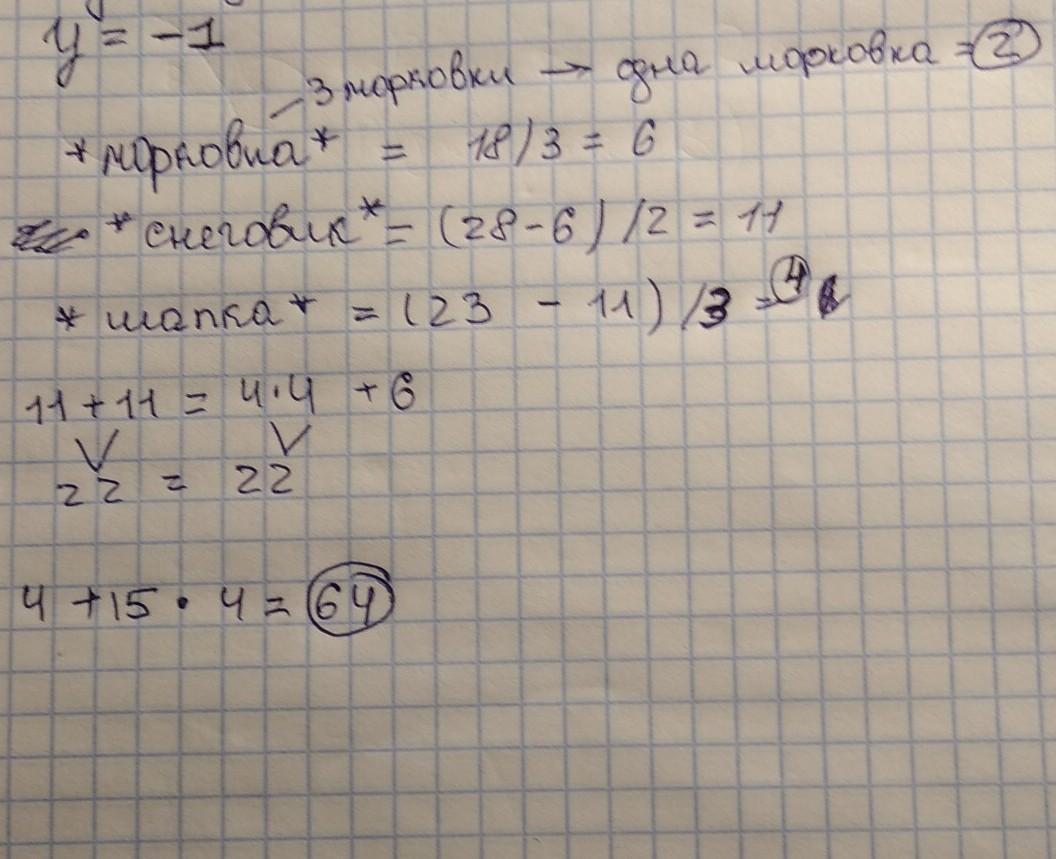 y = -1
3 морковки → одна морковка = 2
*морковка* = 18/3 = 6
*снеговик* = (28-6)/2 = 11
*шапка* = (23 - 11)/3 = 4
11+11 = 4·4 + 6
22 = 22
4 +15 · 4 = 64